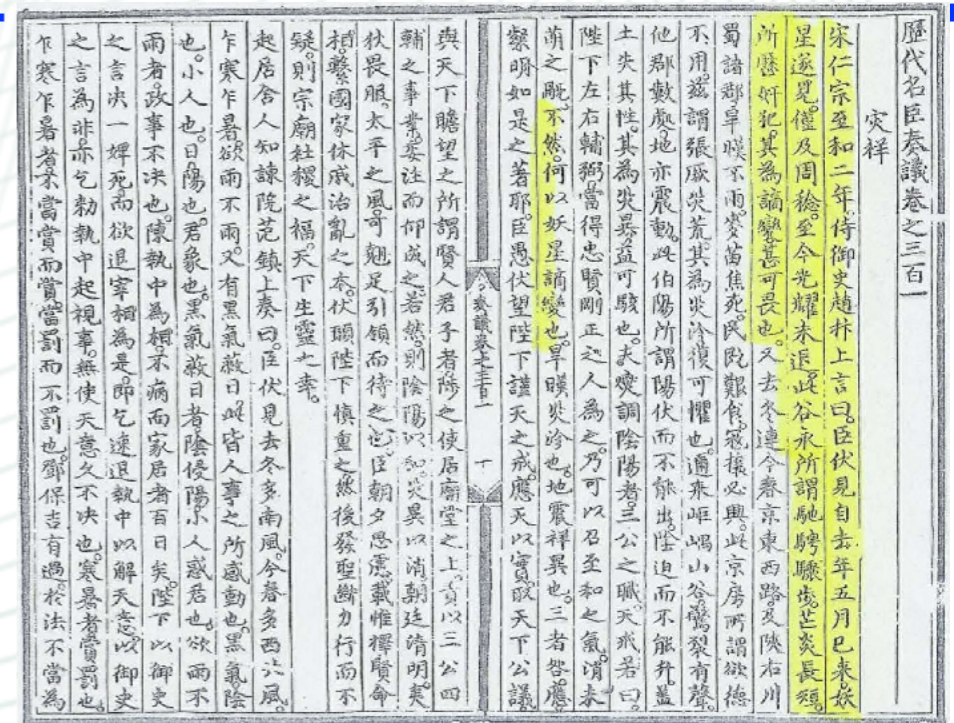 歷代名臣奏議卷之三百一
災祥
宋仁宗至和二年侍御史趙抃上言曰臣伏見自去年五月已來妖
星遂見僅及周稔至今光耀未退此谷永所謂馳騁驟步芒炎長短
所歷奸犯其為謫變甚可畏也又去冬連今春京東西路及陝右川
蜀諸郡旱暵不雨麥苗焦死民既艱食寇攘必興此京房所謂欲德
不用茲謂張厥災荒其為災沴復可懼也邇來岠嵎山谷驚裂有聲
他郡數處地亦震動此伯陽所謂陽伏而不能出陰迫而不能升蓋
土失其性其為災異益可駭也夫燮調陰陽者三公之職天戒若曰
陛下左右輔弼當得忠賢剛正之人為之乃可以召至和之氣消未
萌之眚不然何以妖星謫變也旱暵災沴也地震祥異也三者咎應
繁明如是之著耶臣愚伏望陛下謹天之戒應天以實取天下公議
奏議卷之三百一
十
與天下瞻望之所謂賢人君子者陟之使居廟堂之上責以三公四
輔之事業委注而仰成之若然則陰陽以和災異以消朝廷清明夷
狄畏服太平之風可翹足引領而待之也臣朝夕思慮載惟擇賢命
相繫國家休戚治亂之本伏願陛下慎重之然後發聖斷力行而不
疑則宗廟社稷之福天下生靈之幸
起居舍人知諫院范鎮上奏曰臣伏見去冬多南風今春多西北風
乍寒乍暑欲雨不雨又有黑氣蔽日此皆人事之所感動也黑氣陰
也小人也日陽也君象也黑氣蔽日者陰侵陽小人惑君也欲雨不
雨者政事不決也陳執中為相不病而家居者百日矣陛下以御史
之言決一婢死而欲退宰相為是即乞速退執中以解天意以御史
之言為非亦乞勑執中起視事無使天意久不決也寒暑者賞罰也
乍寒乍暑者不當賞而賞當罰而不罰也鄧保吉有過於法不當為